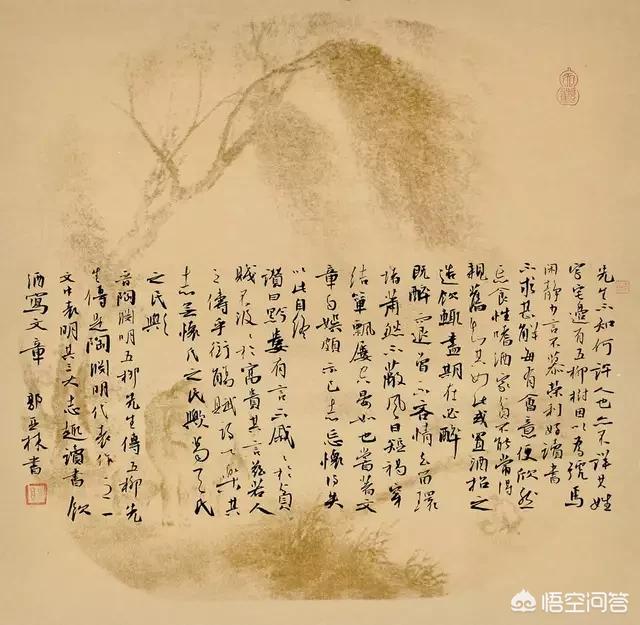 先生不知何許人也亦不詳其姓
字宅邊有五柳樹因以為號焉
閑静少言不慕榮利好讀書
不求甚解每有會意便欣然
忘食性嗜酒家貧不能常得
親舊知其如此或置酒招之
造飲輒盡期在必醉
既醉而退曾不吝情去留環
堵蕭然不蔽風日短褐穿
結簞瓢屢空晏如也嘗著文
章自娛頗示己志忘懷得失
以此自終
讚曰黔婁有言不戚〻於貧
賤不汲〻於富貴其言茲若人
之儔乎銜觴賦詩以樂其
志無懷氏之民歟葛天氏
之民歟
晉陶淵明五柳先生傳五柳先
生傳是陶淵明代表作之一
文中表明其三大志趣讀書飲
酒寫文章 郭亞林書
悟空问答